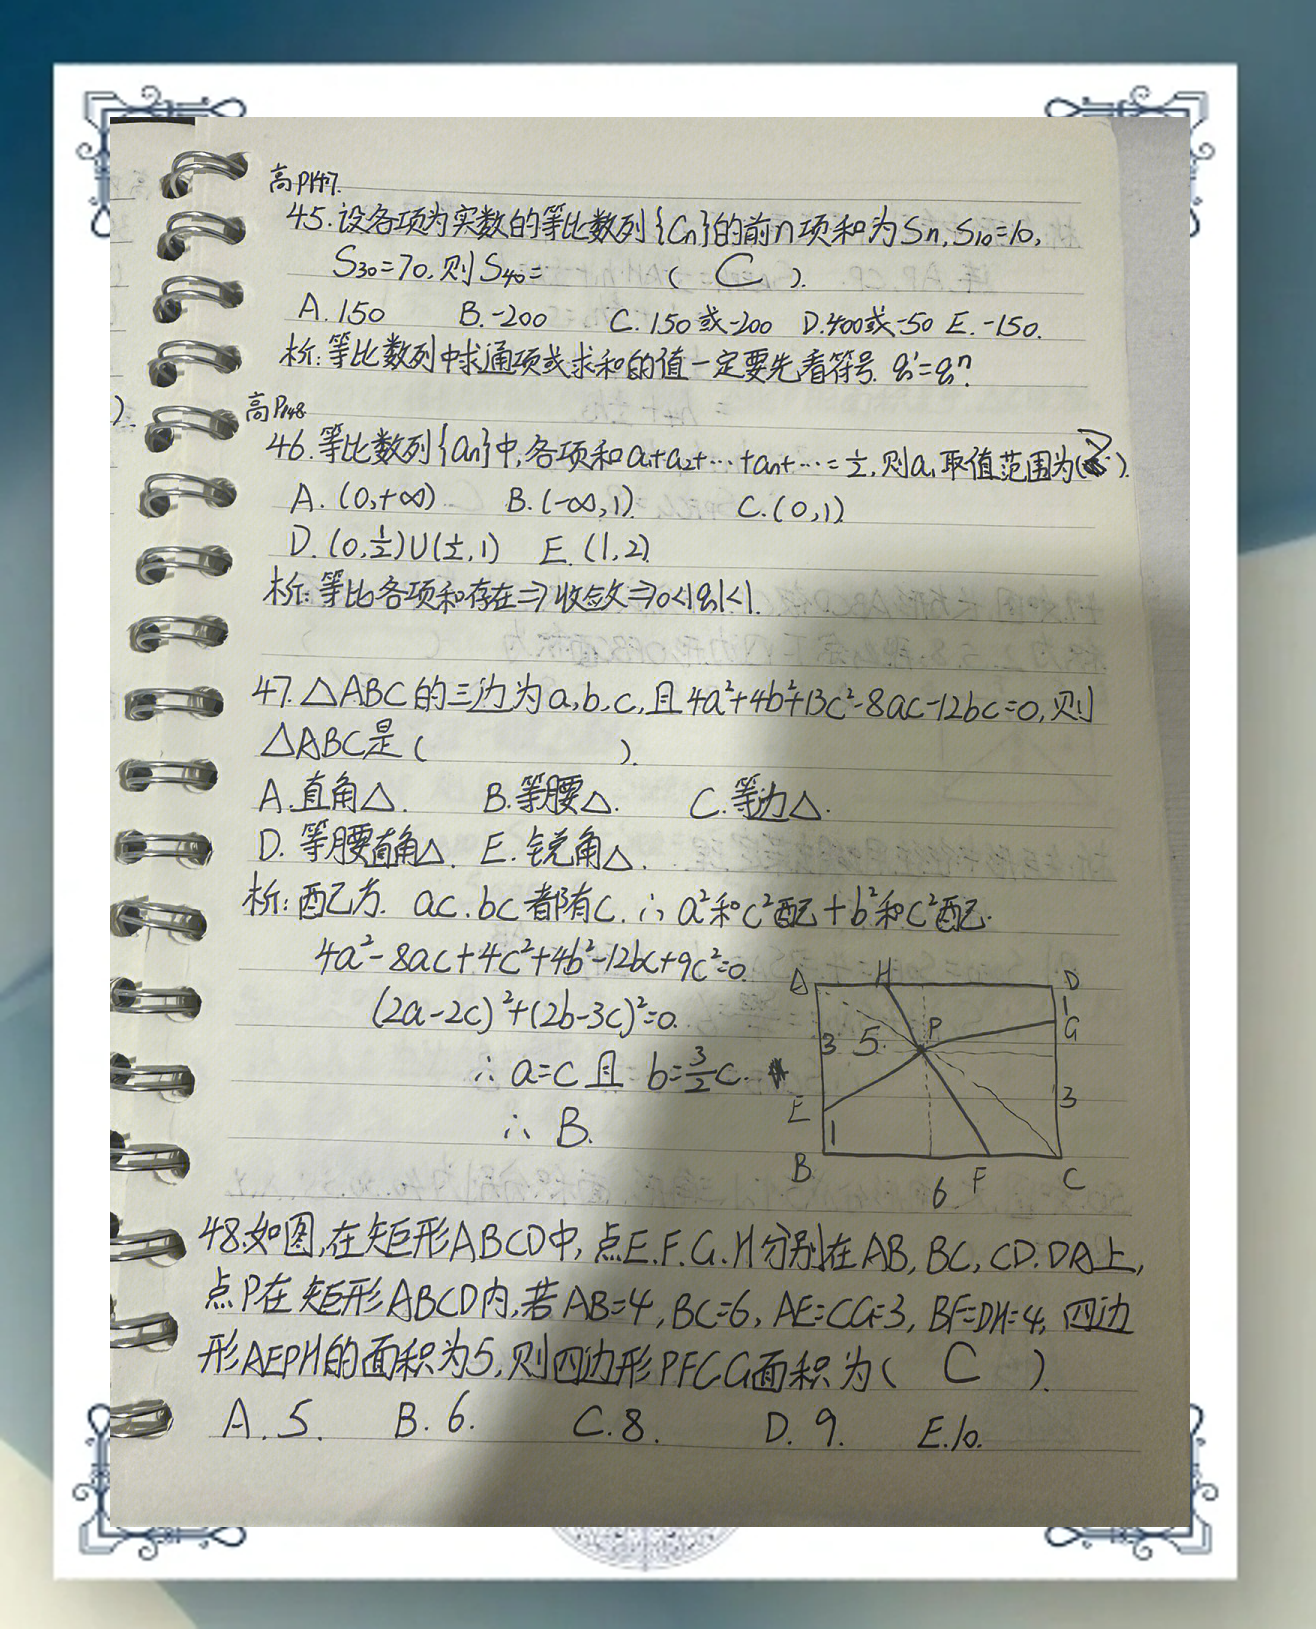 高P147.
45.设各项为实数的等比数列{Cn}的前n项和为Sn,S10=10,
S30=70,则S40=( C ).
A.150 B.-200 C.150或-200 D.400或-50 E.-150.
析:等比数列中求通项或求和的值一定要先看符号.q'=qⁿ.
高P148
46.等比数列{an}中,各项和a1+a2+…+an+…=½,则a1取值范围为( ).
A.(0,+∞) B.(-∞,1) C.(0,1)
D.(0,½)∪(½,1) E.(1,2)
析:等比各项和存在⇒收敛⇒0<|q|<1.
47.△ABC的三边为a,b,c,且4a²+4b²+13c²-8ac-12bc=0,则
△ABC是( ).
A.直角△. B.等腰△. C.等边△.
D.等腰直角△. E.锐角△.
析:配方. ac.bc都有c.∴a²和c²配+b²和c²配.
4a²-8ac+4c²+4b²-12bc+9c²=0.
(2a-2c)²+(2b-3c)²=0.
∴a=c且 b=3/2c.
∴ B.
A H D
1
P G
3 5.
3
E
1
B F C
6
48.如图,在矩形ABCD中,点E.F.G.H分别在AB,BC,CD.DA上,
点P在矩形ABCD内,若AB=4,BC=6,AE=CG=3,BF=DH=4,四边
形AEPH的面积为5,则四边形PFCG面积为( C ).
A.5. B.6. C.8. D.9. E.10.